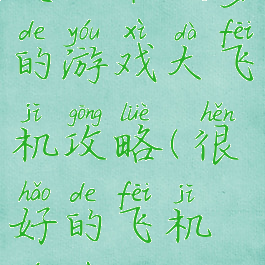 de yóu xì dà fēi
的游戏大飞
jī gōng lüè hěn
机攻略(很
hǎo de fēi jī
好的飞机